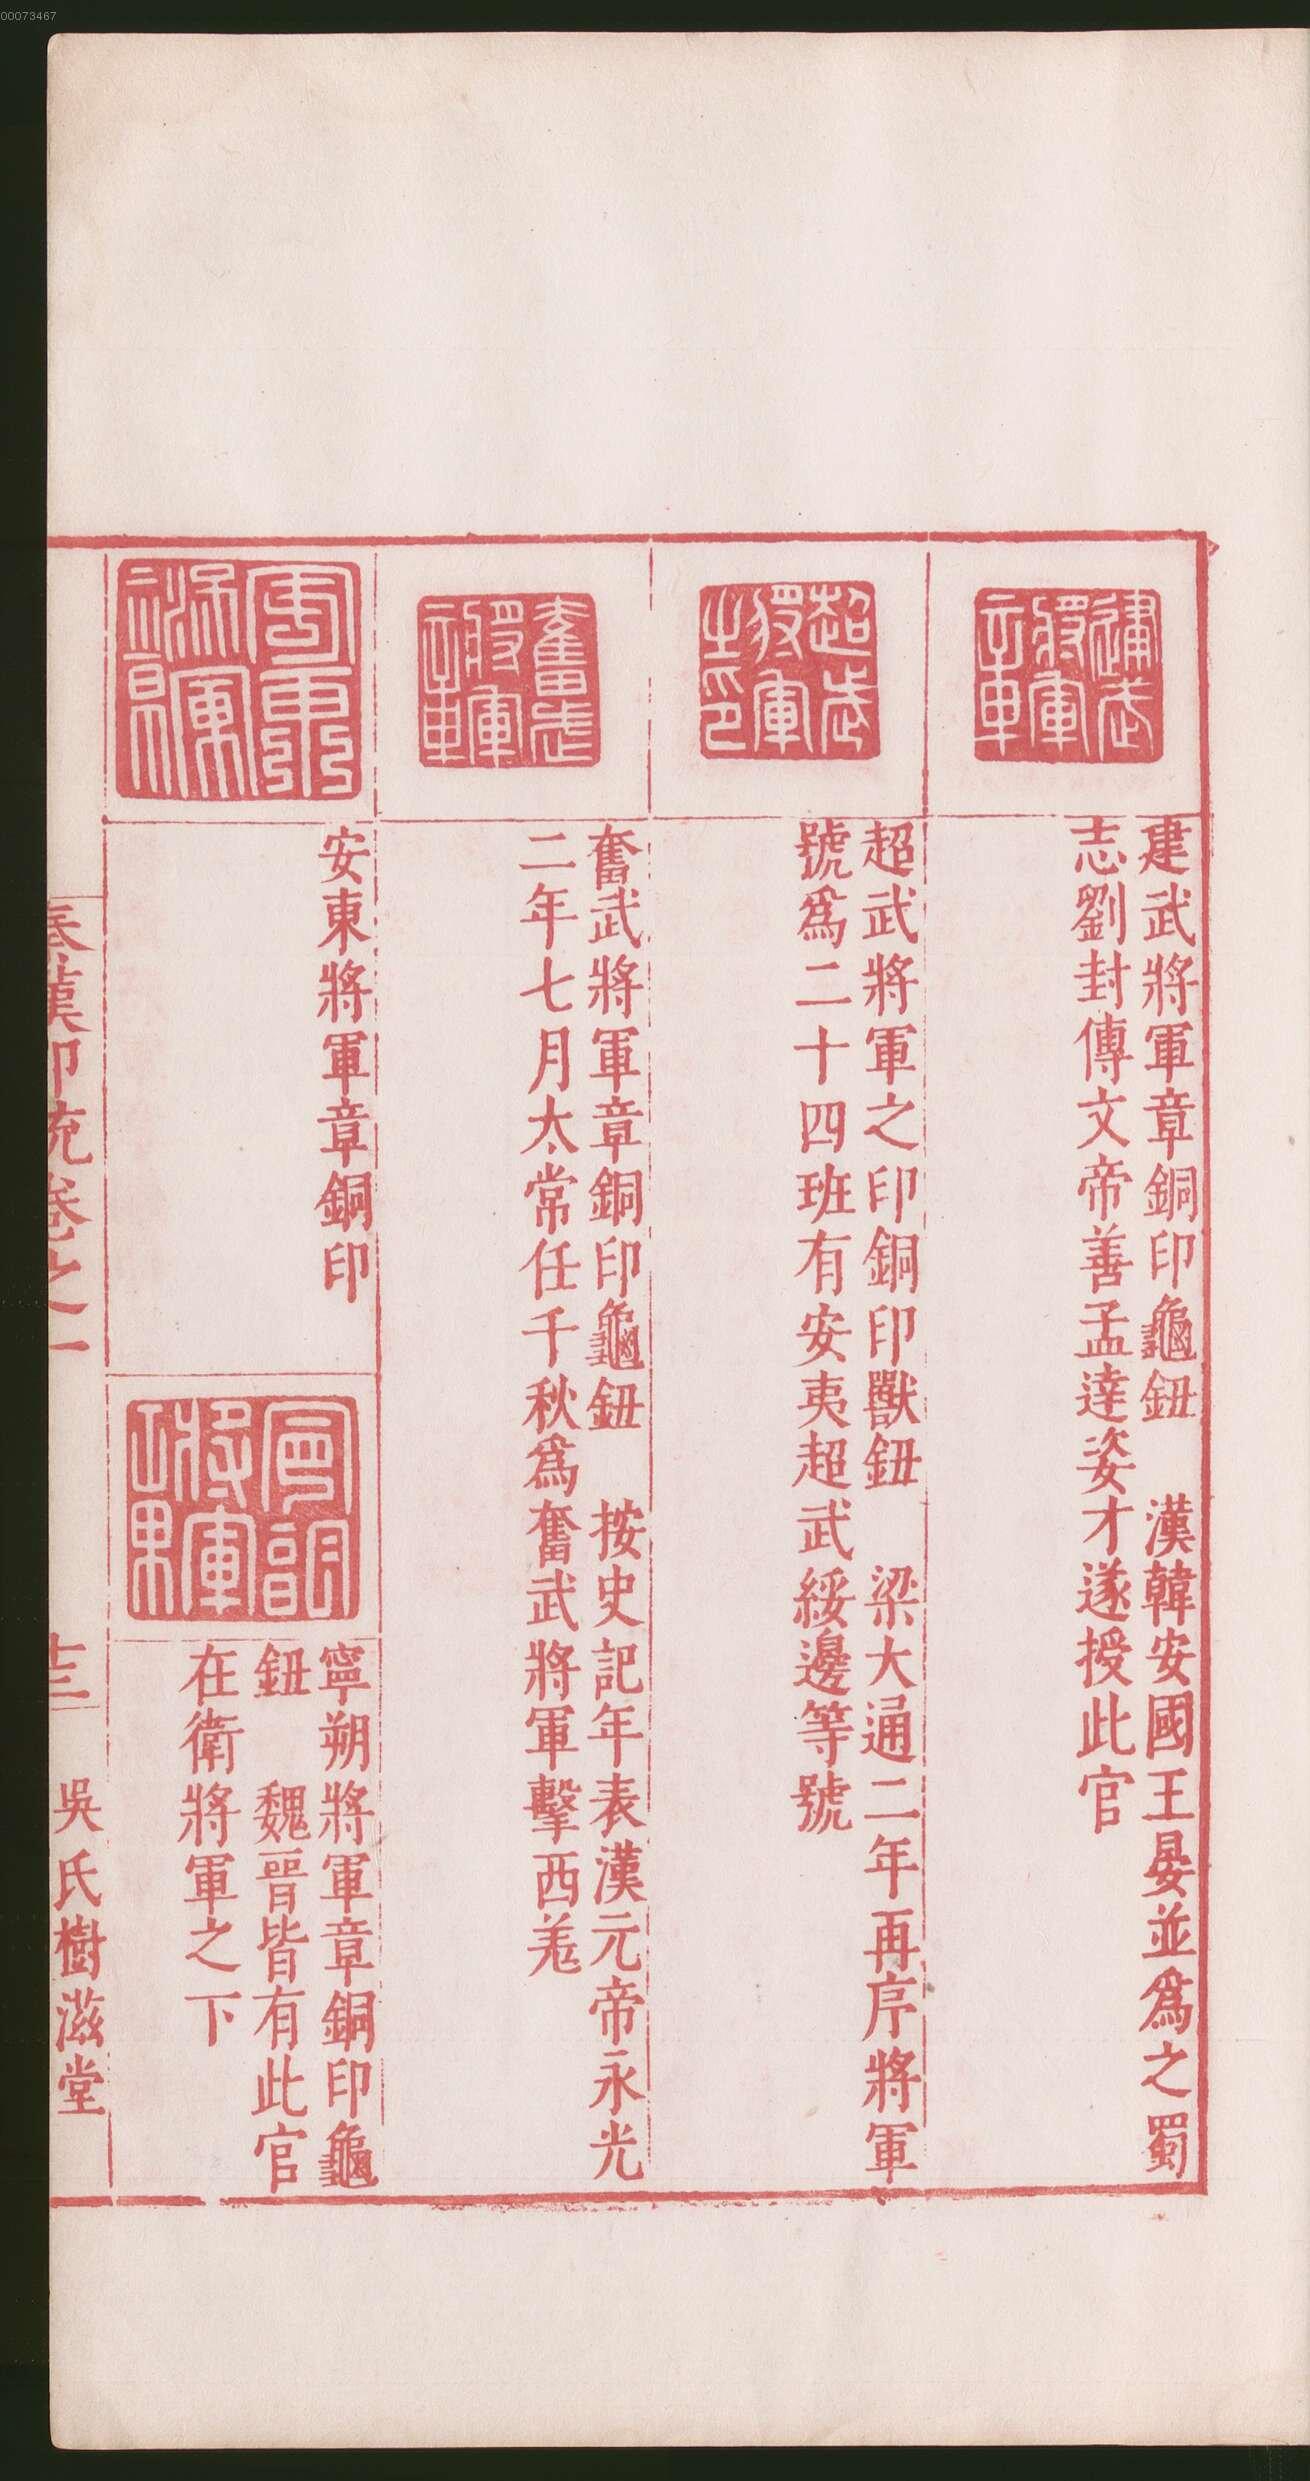 00073467
建武將軍章
建武將軍章銅印龜鈕　漢韓安國王晏並爲之蜀
志劉封傳文帝善孟達姿才遂授此官
超武將軍之印
超武將軍之印銅印獸鈕　梁大通二年再序將軍
號爲二十四班有安夷超武綏邊等號
奮武將軍章
奮武將軍章銅印龜鈕　按史記年表漢元帝永光
二年七月太常任千秋爲奮武將軍擊西羌
安東將軍章銅印
寧朔將軍章
寧朔將軍章銅印龜
鈕　魏晉皆有此官
在衛將軍之下
秦漢印統卷之一
十三
吳氏樹滋堂